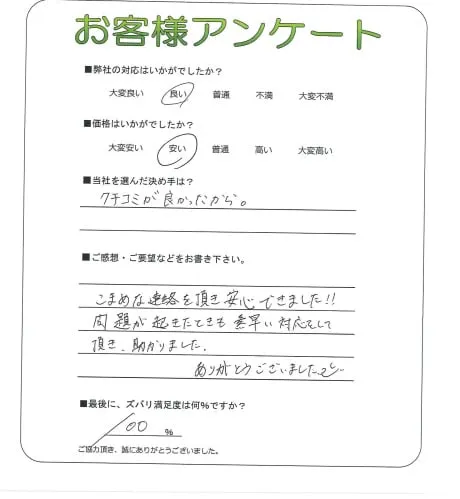 お客様アンケート
■弊社の対応はいかがでしたか？
大変良い 良い 普通 不満 大変不満
■価格はいかがでしたか？
大変安い 安い 普通 高い 大変高い
■当社を選んだ決め手は？
クチコミが良かったから。
■ご感想・ご要望などをお書き下さい。
こまめな連絡を頂き安心できました!!
問題が起きたときも素早い対応をして
頂き、助かりました。
ありがとうございました
■最後に、ズバリ満足度は何%ですか？
100 %
ご協力頂き、誠にありがとうございました。